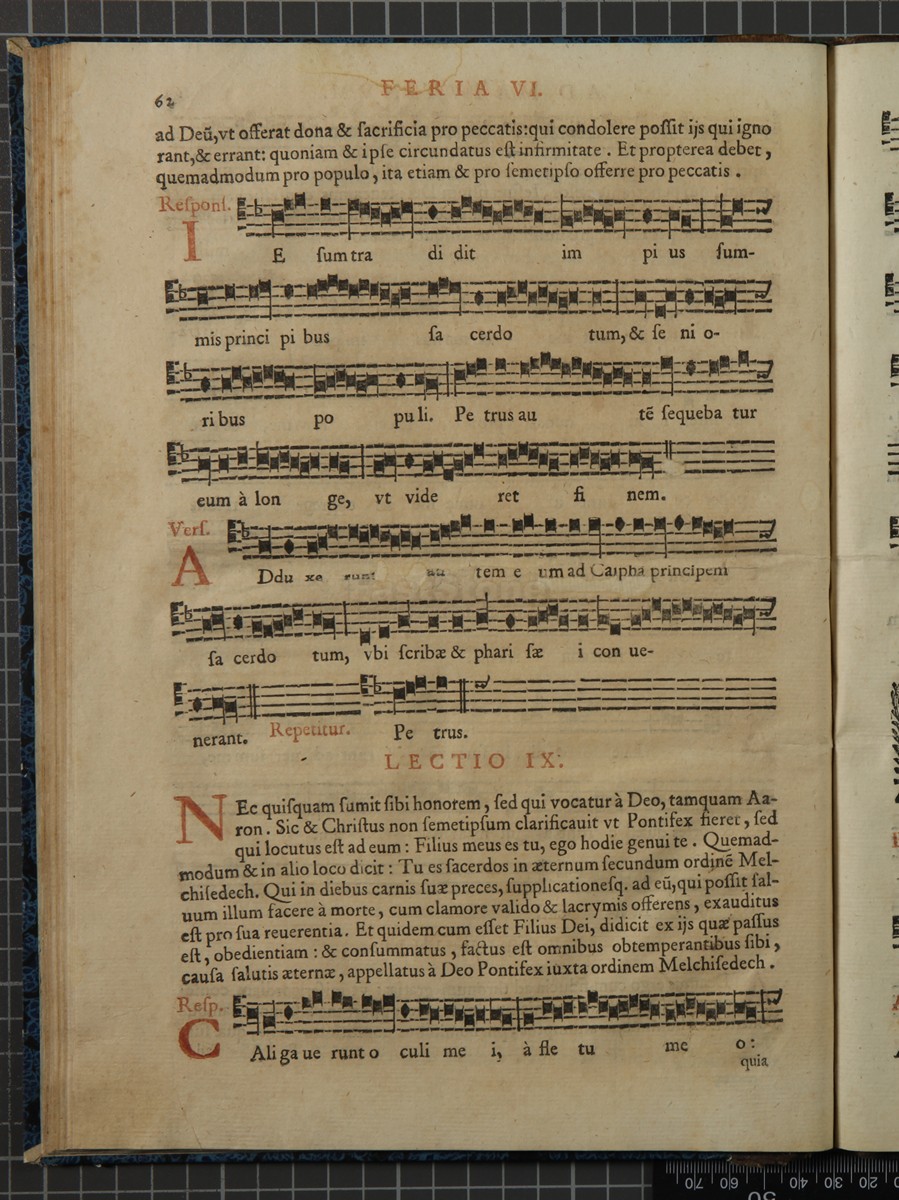 FERIA VI.
62
ad Deũ,vt offerat dona & ſacrificia pro peccatis:qui condolere poſſit ijs qui igno
rant,& errant: quoniam & ipſe circundatus eſt infirmitate . Et propterea debet ,
quemadmodum pro populo , ita etiam & pro ſemetipſo offerre pro peccatis .
Reſponſ.
IE ſum tra di dit im pi us ſum-
mis princi pi bus ſa cerdo tum, & ſe ni o-
ri bus po pu li. Pe trus au tẽ ſequeba tur
eum à lon ge, vt vide ret fi nem.
Verſ.
ADdu xe runt au tem e um ad Caipha principem
ſa cerdo tum, vbi ſcribæ & phari ſæ i con ue-
nerant. Repetitur. Pe trus.
LECTIO IX.
NEc quiſquam ſumit ſibi honorem , ſed qui vocatur à Deo, tamquam Aa-
ron . Sic & Chriſtus non ſemetipſum clarificauit vt Pontifex fieret , ſed
qui locutus eſt ad eum : Filius meus es tu, ego hodie genui te . Quemad-
modum & in alio loco dicit : Tu es ſacerdos in æternum ſecundum ordinẽ Mel-
chiſedech. Qui in diebus carnis ſuæ preces, ſupplicationeſq. ad eũ,qui poſſit ſal-
uum illum facere à morte , cum clamore valido & lacrymis offerens , exauditus
eſt pro ſua reuerentia. Et quidem cum eſſet Filius Dei, didicit ex ijs quæ paſſus
eſt , obedientiam : & conſummatus , factus eſt omnibus obtemperantibus ſibi ,
cauſa ſalutis æternæ , appellatus à Deo Pontifex iuxta ordinem Melchiſedech .
Reſp.
CAli ga ue runt o culi me i, à fle tu me o :
quia
70 60 50 40 30 20 10